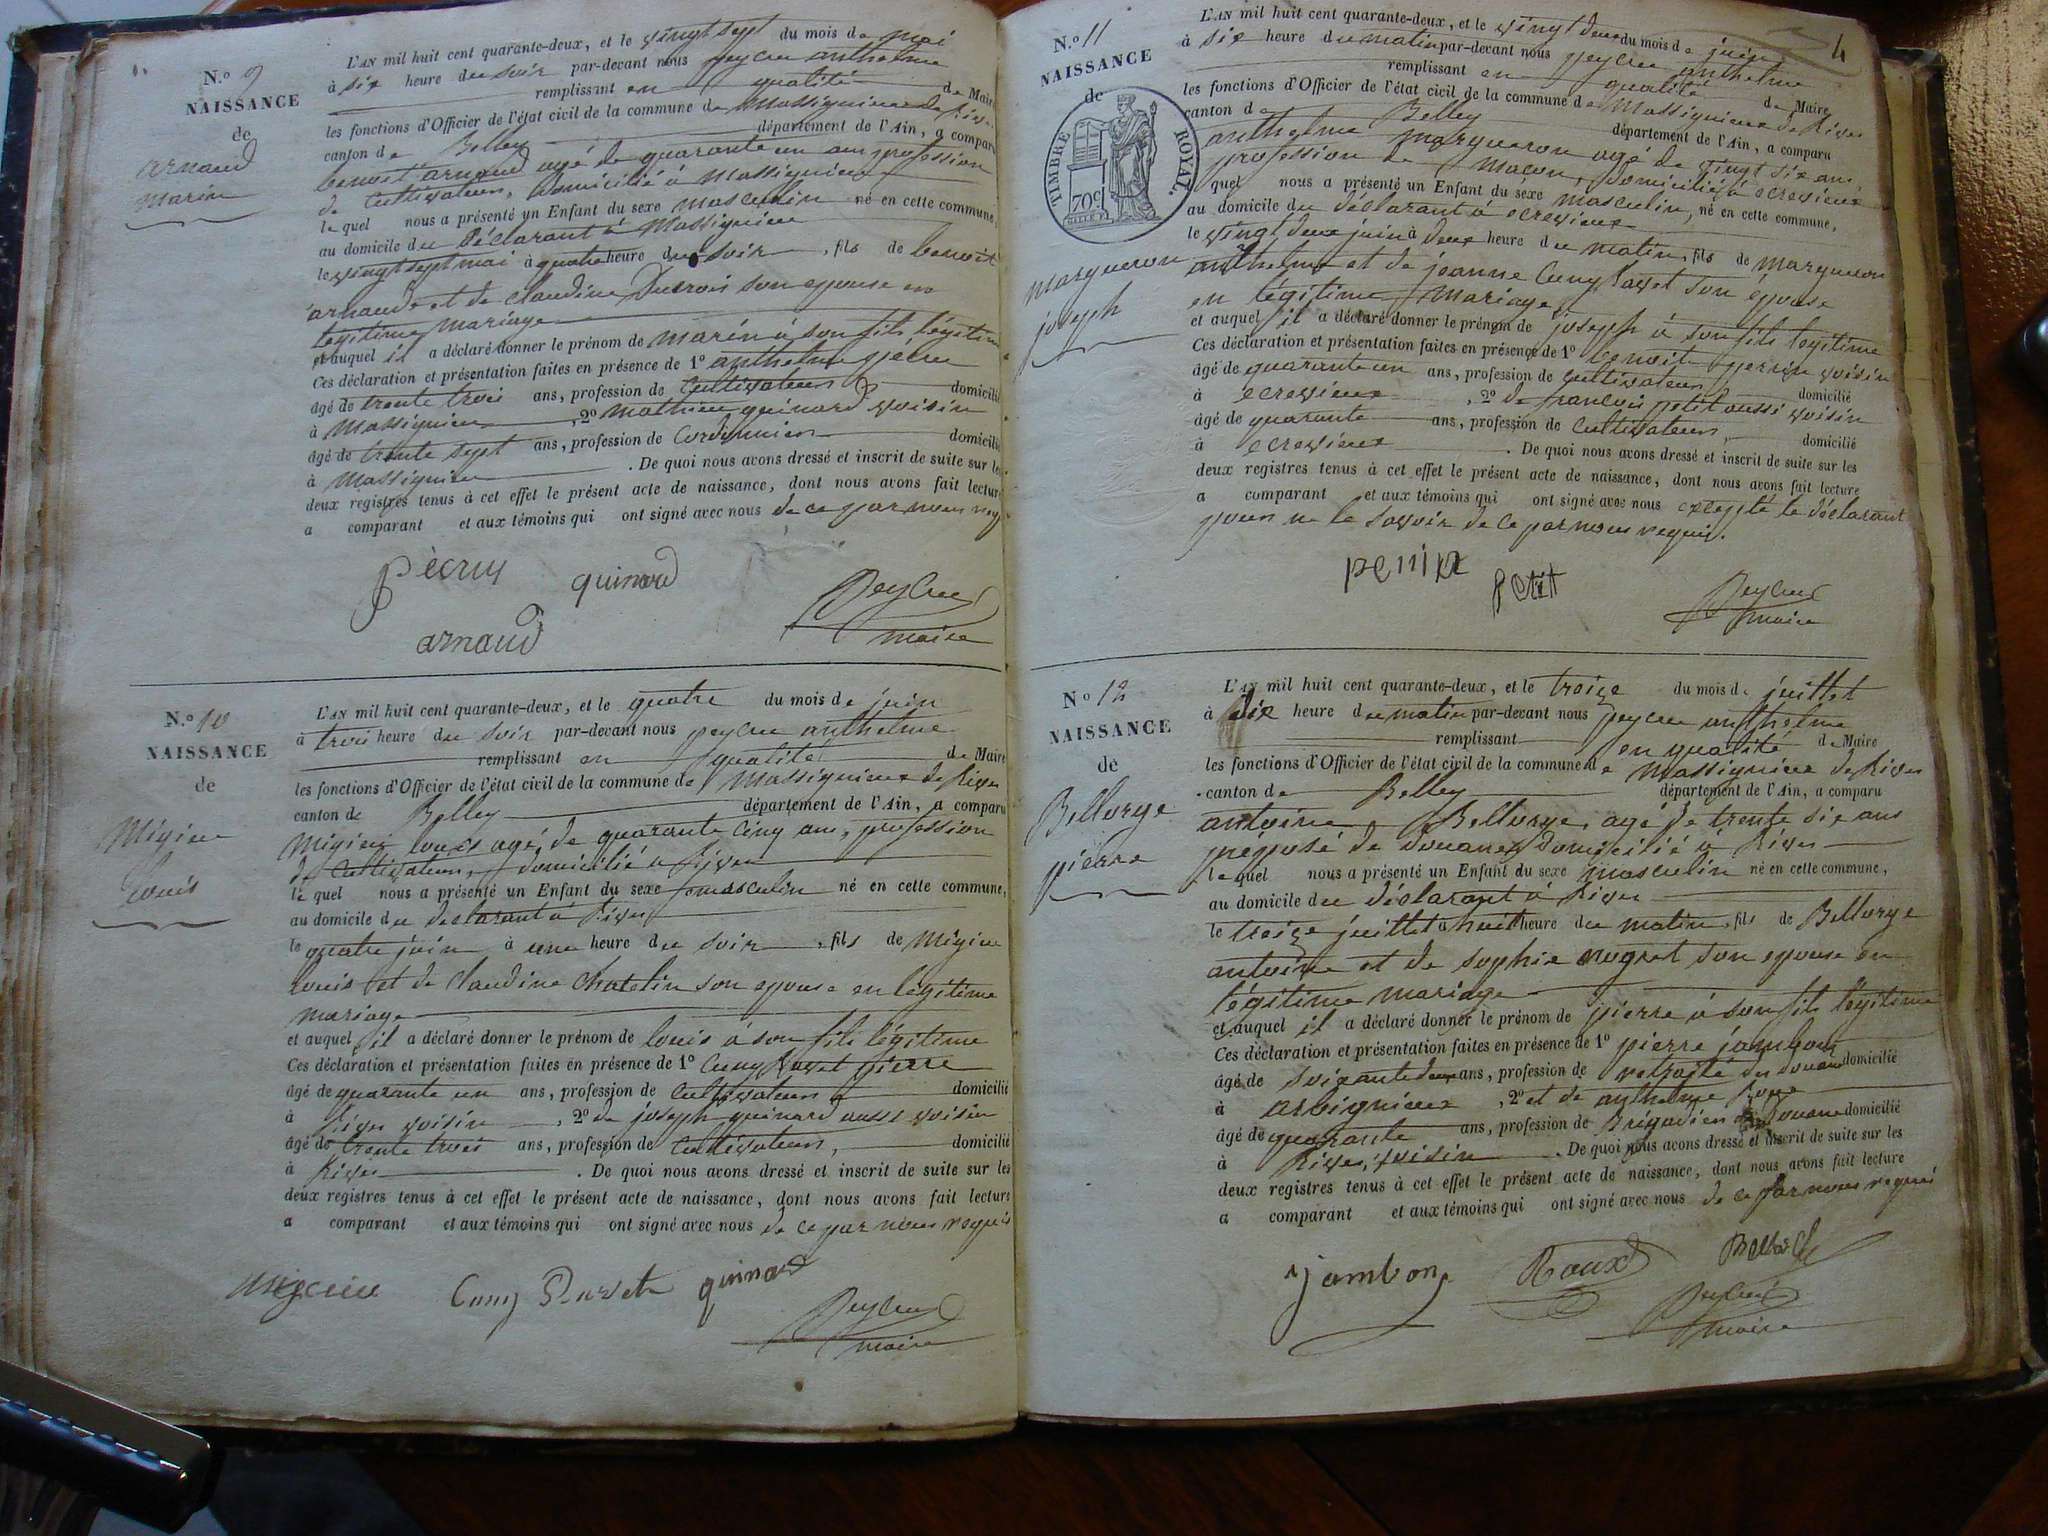 N.º 9
NAISSANCE
de
arnaud
marin
L'AN mil huit cent quarante-deux, et le vingt sept du mois de mai
à six heure du soir par-devant nous peycru anthelme
remplissant en qualité de Maire
les fonctions d'Officier de l'état civil de la commune de Massignieux de Rives
canton de Belley département de l'Ain, a comparu
benoit arnaud agé de quarante un ans profession
de Cultivateur, domicilié à Massignieu
le quel nous a présenté un Enfant du sexe masculin né en cette commune,
au domicile du Déclarant à Massignieu
le vingt sept mai à quatre heure du soir, fils de benoit
arnaud et de claudine Ducrois son epouse en
légitime mariage
et auquel il a déclaré donner le prénom de marin à son fils légitime
Ces déclaration et présentation faites en présence de 1º anthelme
âgé de trente trois ans, profession de Cultivateur domicilié
à Massignieu, 2º mathieu quinard voisin
âgé de trente sept ans, profession de Cordonnier domicilié
à Massignieu. De quoi nous avons dressé et inscrit de suite sur les
deux registres tenus à cet effet le présent acte de naissance, dont nous avons fait lecture
a comparant et aux témoins qui ont signé avec nous de ce par nous requis
quinard
arnaud
Peycru
maire
N.º 10
NAISSANCE
de
Migieu
Louis
L'AN mil huit cent quarante-deux, et le quatre du mois de juin
à trois heure du soir par-devant nous peycru anthelme
remplissant en qualité de Maire
les fonctions d'Officier de l'état civil de la commune de Massignieux de Rives
canton de Belley département de l'Ain, a comparu
Migieu louis agé de quarante cinq ans, profession
de Cultivateur, domicilié à Rives
le quel nous a présenté un Enfant du sexe masculin né en cette commune,
au domicile du declarant à Rives
le quatre juin à une heure du soir, fils de Migieu
louis et de Claudine Chatelin son epouse en légitime
mariage
et auquel il a déclaré donner le prénom de louis à son fils légitime
Ces déclaration et présentation faites en présence de 1º Cuny Ravet pierre
âgé de quarante un ans, profession de Cultivateur domicilié
à Rives voisin, 2º de joseph quinard aussi voisin
âgé de trente trois ans, profession de Cultivateur, domicilié
à Rives. De quoi nous avons dressé et inscrit de suite sur les
deux registres tenus à cet effet le présent acte de naissance, dont nous avons fait lecture
a comparant et aux témoins qui ont signé avec nous de ce par nous requis
Cuny Ravet quinard
Peycru
maire
4
N.º 11
NAISSANCE
de
TIMBRE ROYAL.
70c
marqueron
joseph
L'AN mil huit cent quarante-deux, et le vingt deux du mois de juin
à six heure du matin par-devant nous peycru anthelme
remplissant en qualité de Maire
les fonctions d'Officier de l'état civil de la commune de Massignieux de Rives
canton de Belley département de l'Ain, a comparu
anthelme marqueron agé de vingt six ans,
profession de Macon, domicilié à ecrevieux
quel nous a présenté un Enfant du sexe masculin, né en cette commune,
au domicile du déclarant à ecrevieux
le vingt deux juin à deux heure du matin, fils de marqueron
anthelme et de jeanne Cuny Ravet son épouse
en légitime mariage
et auquel il a déclaré donner le prénom de joseph à son fils légitime
Ces déclaration et présentation faites en présence de 1º benoit perrin voisin
âgé de quarante un ans, profession de Cultivateur domicilié
à ecrevieux, 2º de francois petit aussi voisin
âgé de quarante ans, profession de Cultivateur, domicilié
à ecrevieux. De quoi nous avons dressé et inscrit de suite sur les
deux registres tenus à cet effet le présent acte de naissance, dont nous avons fait lecture
a comparant et aux témoins qui ont signé avec nous excepté le déclarant
pour ne le savoir de ce par nous requis.
perrin
Petit
Peycru
maire
Nº 12
NAISSANCE
de
Bellorge
pierre
L'AN mil huit cent quarante-deux, et le treize du mois de juillet
à dix heure du matin par-devant nous peycru anthelme
remplissant en qualité de Maire
les fonctions d'Officier de l'état civil de la commune de Massignieux de Rives
canton de Belley département de l'Ain, a comparu
antoine Bellorge, agé de trente six ans
préposé de douanes Domicilié à Rives
le quel nous a présenté un Enfant du sexe masculin né en cette commune,
au domicile du déclarant à Rives
le treize juillet à huit heure du matin, fils de Bellorge
antoine et de sophie son epouse en
légitime mariage
et auquel il a déclaré donner le prénom de pierre à son fils légitime
Ces déclaration et présentation faites en présence de 1º pierre jambon
âgé de soixante deux ans, profession de retraité des douane domicilié
à arbignieux, 2º et de anthelme Roux
âgé de quarante ans, profession de Brigadier de Douane domicilié
à Rives, voisin. De quoi nous avons dressé et inscrit de suite sur les
deux registres tenus à cet effet le présent acte de naissance, dont nous avons fait lecture
a comparant et aux témoins qui ont signé avec nous de ce par nous requis
jambon Roux
Peycru
maire